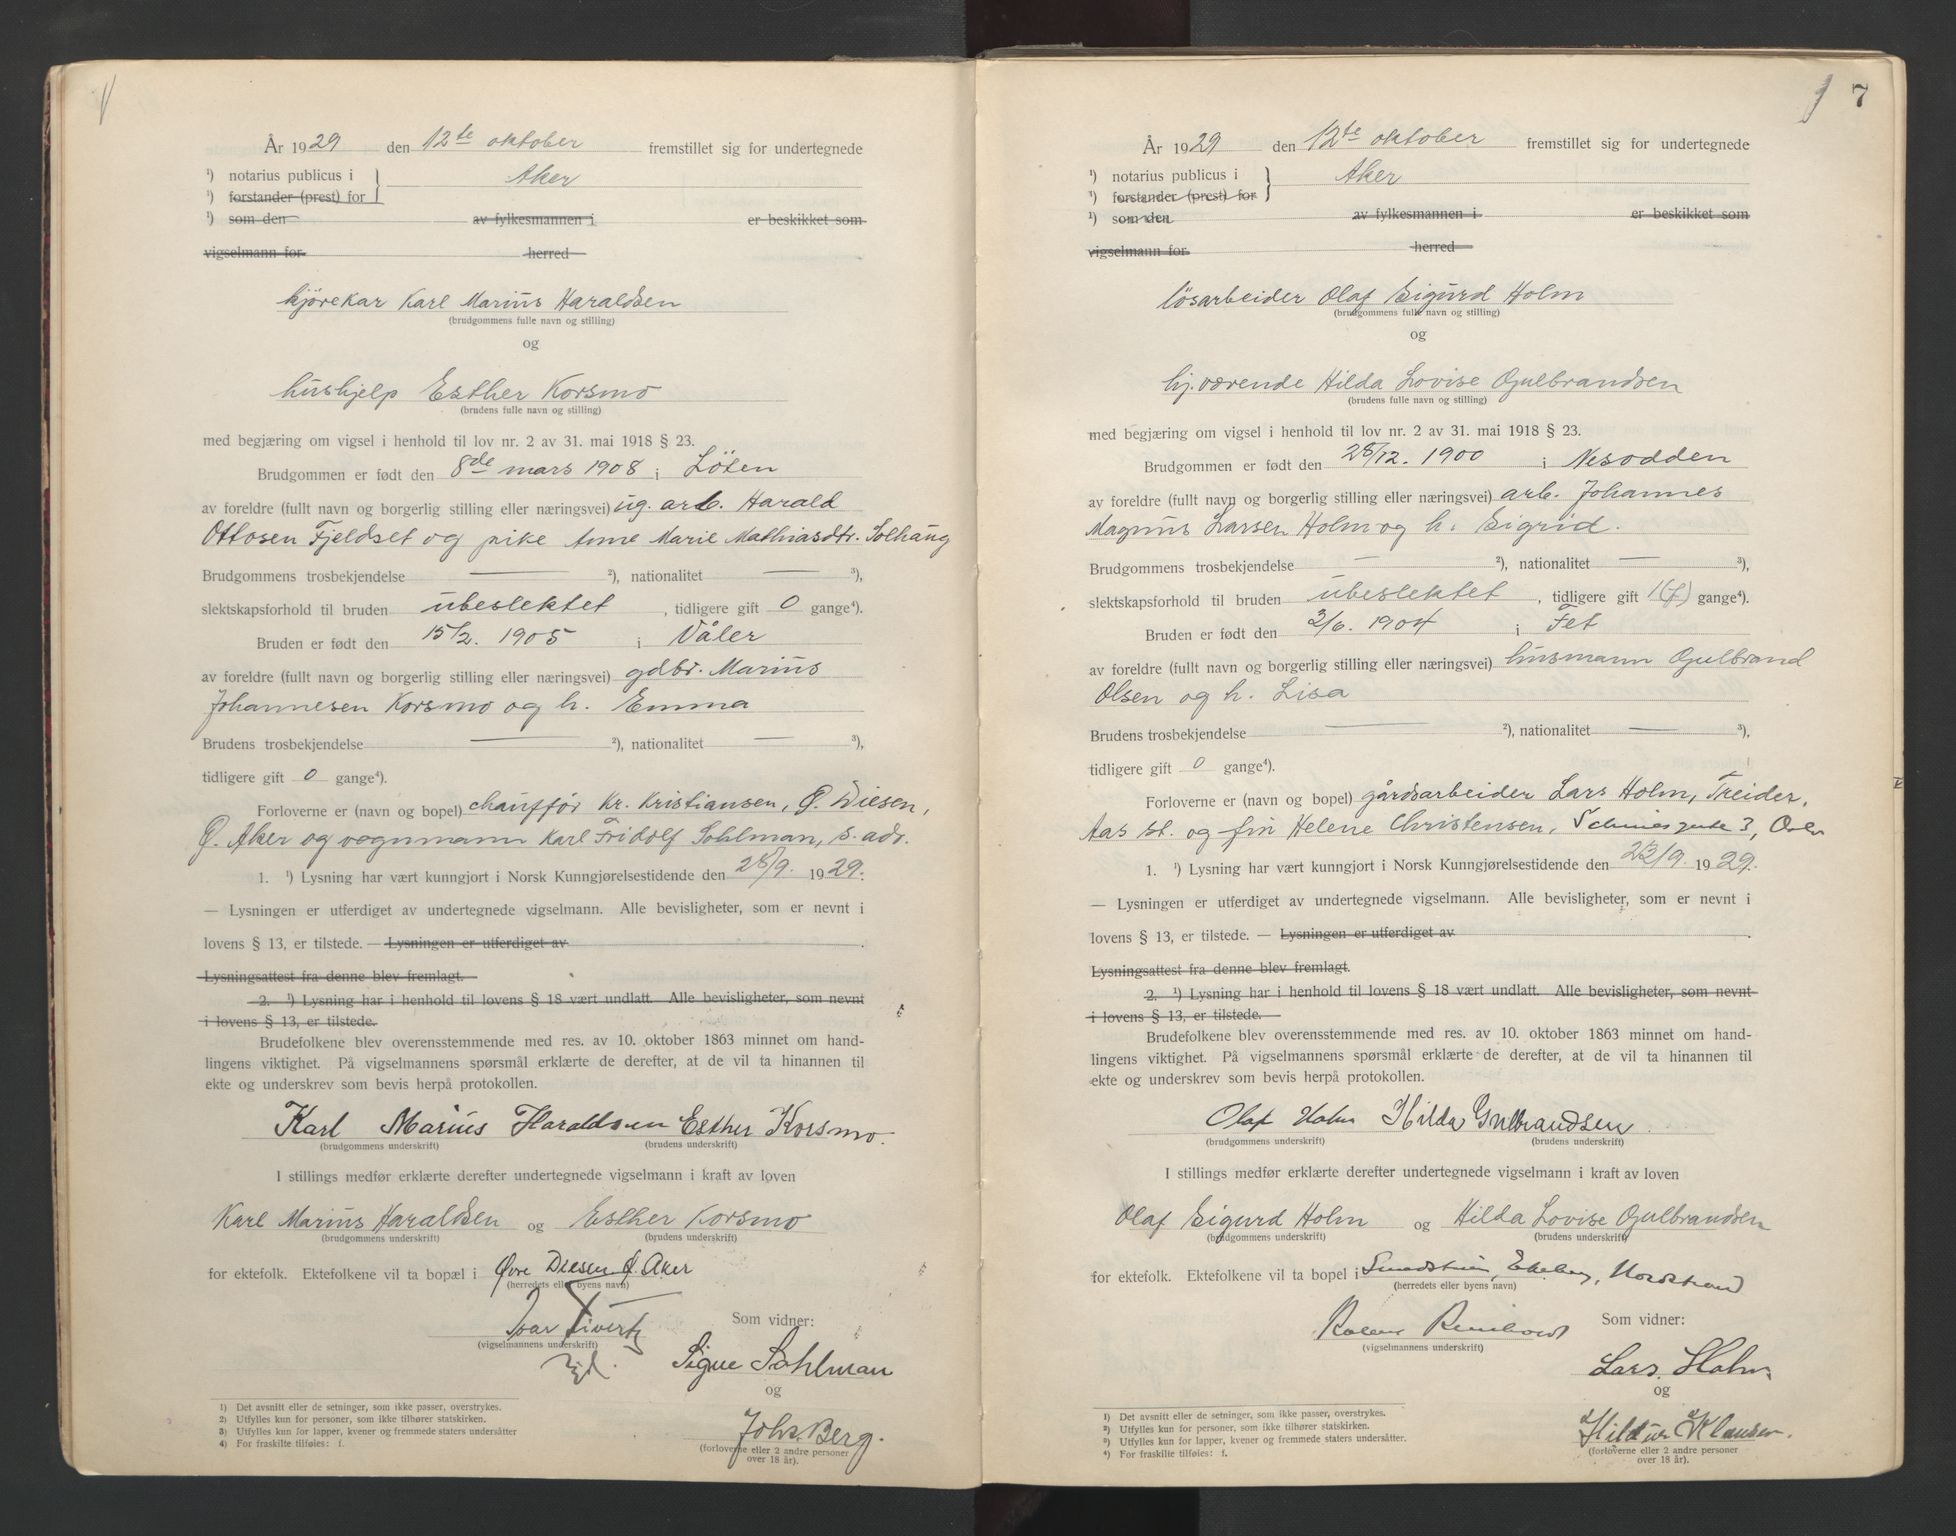 År 1929 den 12te oktober fremstillet sig for undertegnede
¹) notarius publicus i } Aker
¹) forstander (prest) for
¹) som den av fylkesmannen i er beskikket som
vigselmann for herred
kjørekar Karl Marius Haraldsen
(brudgommens fulle navn og stilling)
og
hushjelp Esther Korsmo
(brudens fulle navn og stilling)
med begjæring om vigsel i henhold til lov nr. 2 av 31. mai 1918 § 23.
Brudgommen er født den 8de mars 1908 i Löten
av foreldre (fullt navn og borgerlig stilling eller næringsvei) ug. arb. Harald
Ottosen Fjeldset og pike Anne Marie Mathiasdtr. Solhaug
Brudgommens trosbekjendelse — ²), nationalitet — ³),
slektskapsforhold til bruden ubeslektet , tidligere gift 0 gange⁴).
Bruden er født den 15/2. 1905 i Våler
av foreldre (fullt navn og borgerlig stilling eller næringsvei) gdbr. Marius
Johannesen Korsmo og h. Emma
Brudens trosbekjendelse — ²), nationalitet — ³),
tidligere gift 0 gange⁴).
Forloverne er (navn og bopel) chauffør Kr. Kristiansen, Ø. Diesen,
Ø. Aker og vognmann Karl Fridolf Sohlman, s. adr.
1. ¹) Lysning har vært kunngjort i Norsk Kunngjørelsestidende den 28/9. 1929.
— Lysningen er utferdiget av undertegnede vigselmann. Alle bevisligheter, som er nevnt i
lovens § 13, er tilstede. — Lysningen er utferdiget av .
Lysningsattest fra denne blev fremlagt.
2. ¹) Lysning har i henhold til lovens § 18 vært undlatt. Alle bevisligheter, som nevnt
i lovens § 13, er tilstede.
Brudefolkene blev overensstemmende med res. av 10. oktober 1863 minnet om hand-
lingens viktighet. På vigselmannens spørsmål erklærte de derefter, at de vil ta hinannen til
ekte og underskrev som bevis herpå protokollen.
Karl Marius Haraldsen Esther Korsmo.
(brudgommens underskrift) (brudens underskrift)
I stillings medfør erklærte derefter undertegnede vigselmann i kraft av loven
Karl Marius Haraldsen og Esther Korsmo
(brudgommens underskrift) (brudens underskrift)
for ektefolk. Ektefolkene vil ta bopæl i Øvre Diesen Ø. Aker
(herredets eller byens navn)
Ivar Sivertz Som vidner:
(vigselmannens underskrift)
Signe Sohlman
og
Johs. Berg.
(forloverne eller 2 andre personer
over 18 år).
1) Det avsnitt eller de setninger, som ikke passer, overstrykes.
2) Utfylles kun for personer, som ikke tilhører statskirken.
3) Utfylles kun for lapper, kvener og fremmede staters undersåtter
4) For fraskilte tilføies: f.
7
År 1929 den 12te oktober fremstillet sig for undertegnede
¹) notarius publicus i } Aker
¹) forstander (prest) for
¹) som den av fylkesmannen i er beskikket som
vigselmann for herred
lösarbeider Olaf Sigurd Holm
(brudgommens fulle navn og stilling)
og
hj.værende Hilda Lovise Gulbrandsen
(brudens fulle navn og stilling)
med begjæring om vigsel i henhold til lov nr. 2 av 31. mai 1918 § 23.
Brudgommen er født den 28/12. 1900 i Nesodden
av foreldre (fullt navn og borgerlig stilling eller næringsvei) arb. Johannes
Magnus Larsen Holm og h. Sigrid.
Brudgommens trosbekjendelse — ²), nationalitet — ³),
slektskapsforhold til bruden ubeslektet , tidligere gift 1(f) gange⁴).
Bruden er født den 2/6. 1904 i Fet
av foreldre (fullt navn og borgerlig stilling eller næringsvei) husmann Gulbrand
Olsen og h. Lisa
Brudens trosbekjendelse — ²), nationalitet — ³),
tidligere gift 0 gange⁴).
Forloverne er (navn og bopel) gårdsarbeider Lars Holm, Treider,
Aas st. og frk Helene Christensen, gate 3, Oslo
1. ¹) Lysning har vært kunngjort i Norsk Kunngjørelsestidende den 23/9. 1929.
— Lysningen er utferdiget av undertegnede vigselmann. Alle bevisligheter, som er nevnt i
lovens § 13, er tilstede. — Lysningen er utferdiget av .
Lysningsattest fra denne blev fremlagt.
2. ¹) Lysning har i henhold til lovens § 18 vært undlatt. Alle bevisligheter, som nevnt
i lovens § 13, er tilstede.
Brudefolkene blev overensstemmende med res. av 10. oktober 1863 minnet om hand-
lingens viktighet. På vigselmannens spørsmål erklærte de derefter, at de vil ta hinannen til
ekte og underskrev som bevis herpå protokollen.
Olaf Holm Hilda Gulbrandsen
(brudgommens underskrift) (brudens underskrift)
I stillings medfør erklærte derefter undertegnede vigselmann i kraft av loven
Olaf Sigurd Holm og Hilda Lovise Gulbrandsen
(brudgommens underskrift) (brudens underskrift)
for ektefolk. Ektefolkene vil ta bopel i Ekeberg, Nordstrand
(herredets eller byens navn)
Som vidner:
(vigselmannens underskrift)
Lars Holm
og
Hildur Klausen.
(forloverne eller 2 andre personer
over 18 år).
1) Det avsnitt eller de setninger, som ikke passer, overstrykes.
2) Utfylles kun for personer, som ikke tilhører statskirken.
3) Utfylles kun for lapper, kvener og fremmede staters undersåtter.
4) For fraskilte tilføies: f.